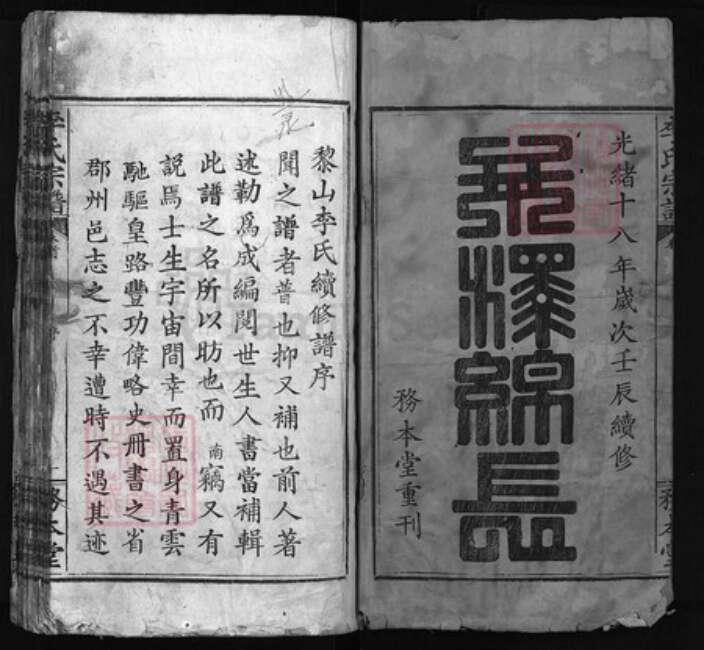 光緒十八年歲次壬辰續修
澤綿長
務本堂重刊
黎山李氏續修譜序
聞之譜者普也抑又補也前人著
述勒爲成編閱世生人書當補輯
此譜之名所以昉也而南竊又有
說焉士生宇宙間幸而置身青雲
馳驅皇路豐功偉略史冊書之省
郡州邑志之不幸遭時不遇其迹
李氏宗譜
務本堂
李氏宗譜
務本堂